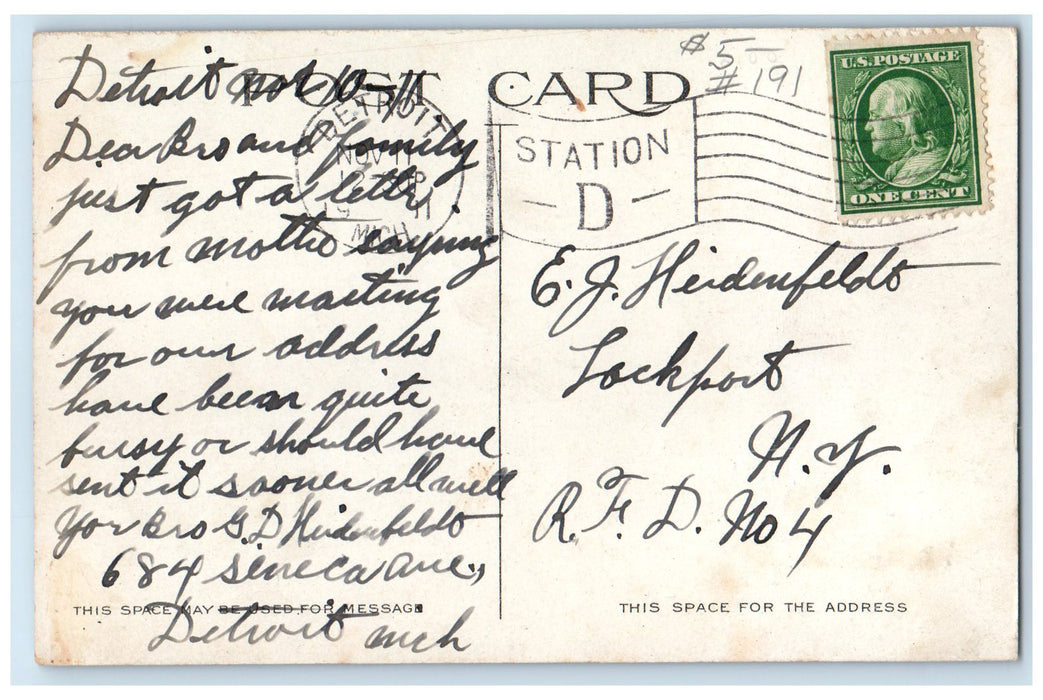 Detroit Nov 10-11
Dear Bro and family
just got a letter
from mother saying
you were waiting
for our address
have been quite
bussy or should have
sent it sooner all well
Yor Bro G. D Heidenfeldt
684 Seneca Ave.,
Detroit Mch
THIS SPACE MAY BE USED FOR MESSAGE
POST CARD
DETROIT
NOV 11
11
MICH.
STATION
- D -
$5-
#191
U.S. POSTAGE
ONE CENT
E. J. Heidenfeldt
Lockport
N. Y.
R. F. D. No 4
THIS SPACE FOR THE ADDRESS